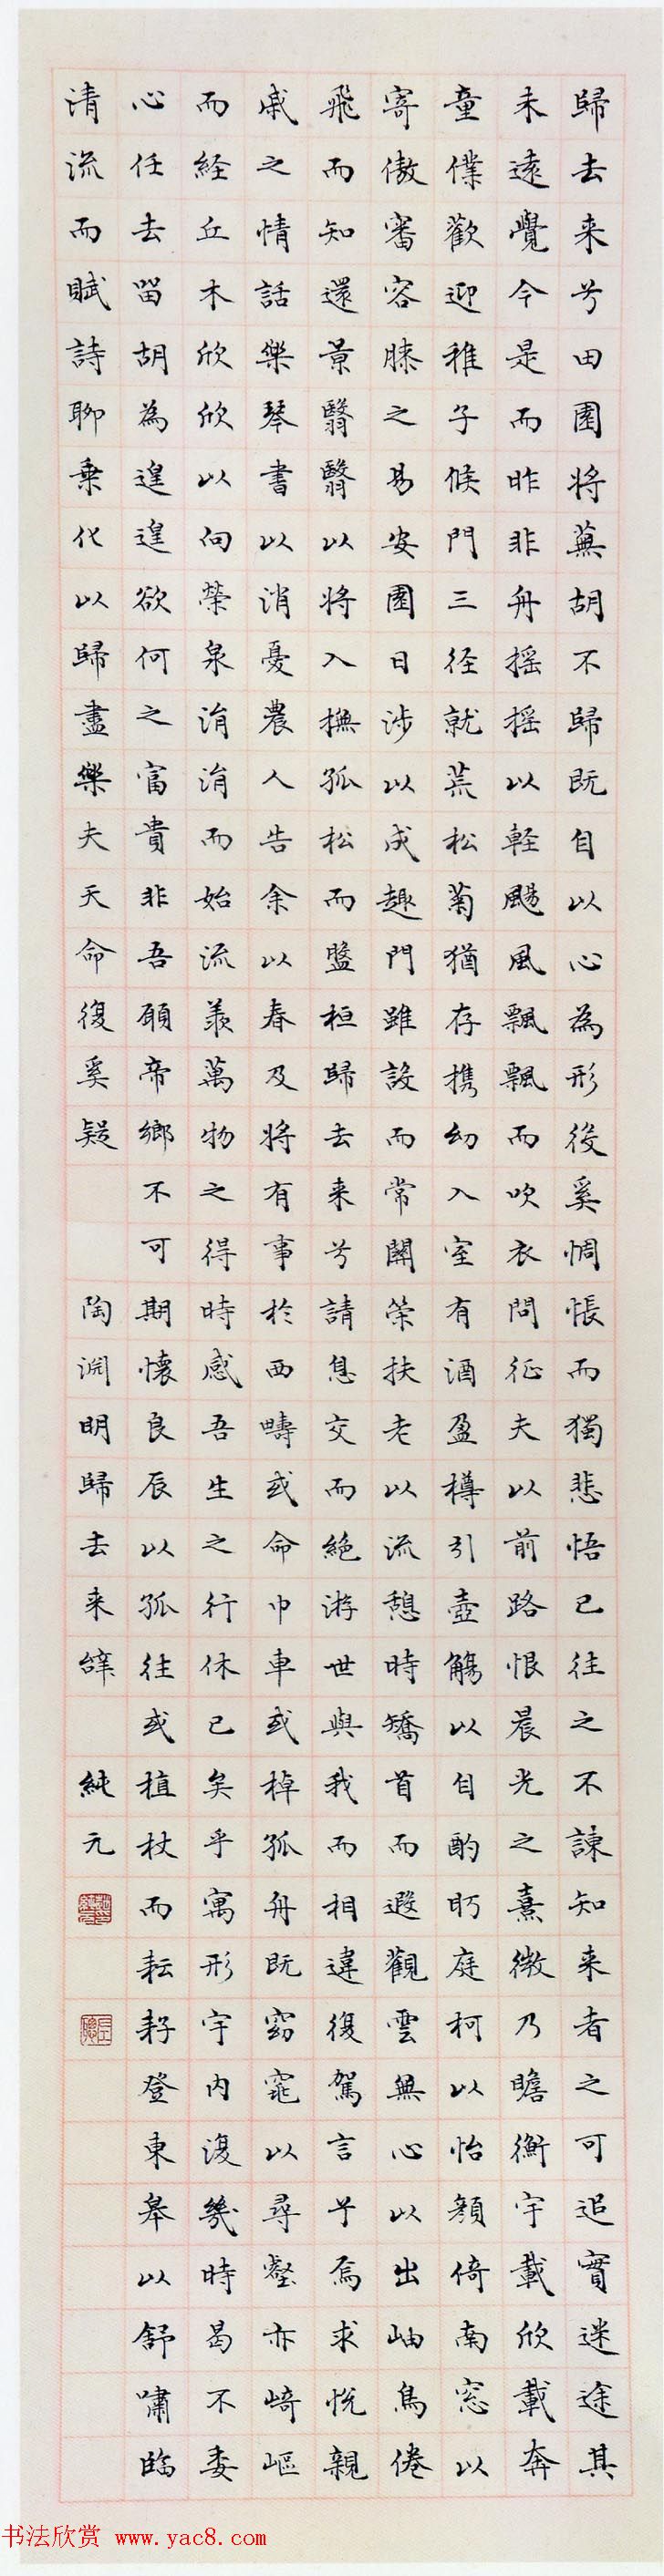 歸去来兮田園将蕪胡不歸既自以心為形役奚惆悵而獨悲悟已往之不諫知来者之可追實迷途其
未遠覺今是而昨非舟摇摇以軽颺風飄飄而吹衣問征夫以前路恨晨光之熹微乃瞻衡宇載欣載奔
童僕歡迎稚子候門三径就荒松菊猶存携幼入室有酒盈樽引壺觴以自酌眄庭柯以怡顔倚南窓以
寄傲審容膝之易安園日渉以成趣門雖設而常關策扶老以流憩時矯首而遐觀雲無心以出岫鳥倦
飛而知還景翳翳以将入撫孤松而盤桓歸去来兮請息交而絶游世與我而相違復駕言兮焉求悦親
戚之情話樂琴書以消憂農人告余以春及将有事於西疇或命巾車或棹孤舟既窈窕以尋壑亦崎嶇
而経丘木欣欣以向榮泉涓涓而始流羨萬物之得時感吾生之行休已矣乎寓形宇内復幾時曷不委
心任去留胡為遑遑欲何之富貴非吾願帝郷不可期懷良辰以孤往或植杖而耘耔登東皋以舒嘯臨
清流而賦詩聊乗化以歸盡樂夫天命復奚疑 陶渊明歸去来辞 純元
书法欣赏 www.yac8.com